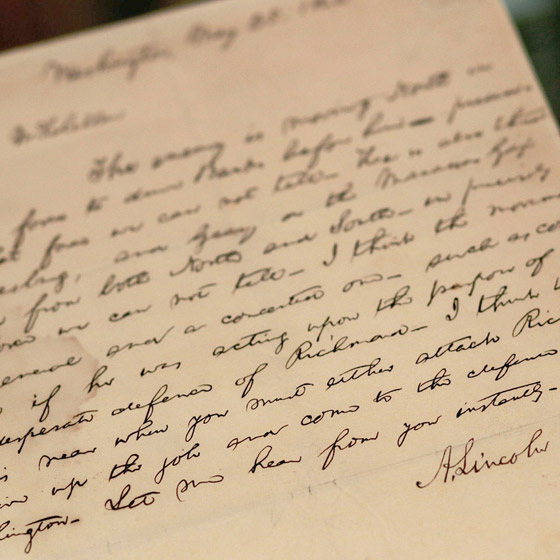 Washington, May 25. 
The enemy is moving North in
force to drive Banks before him—
force we can not tell. He is also
and Geary on the Manassas Gap
from both North and South—in precisely
force we can not tell. I think the movem
general and a concerted one—such as co
if he was acting upon the purpose of
desperate defence of Richmond—I think
is near when you must either attack Ric
up the job and come to the defence
ington. Let me hear from you instantly.
A. Lincoln